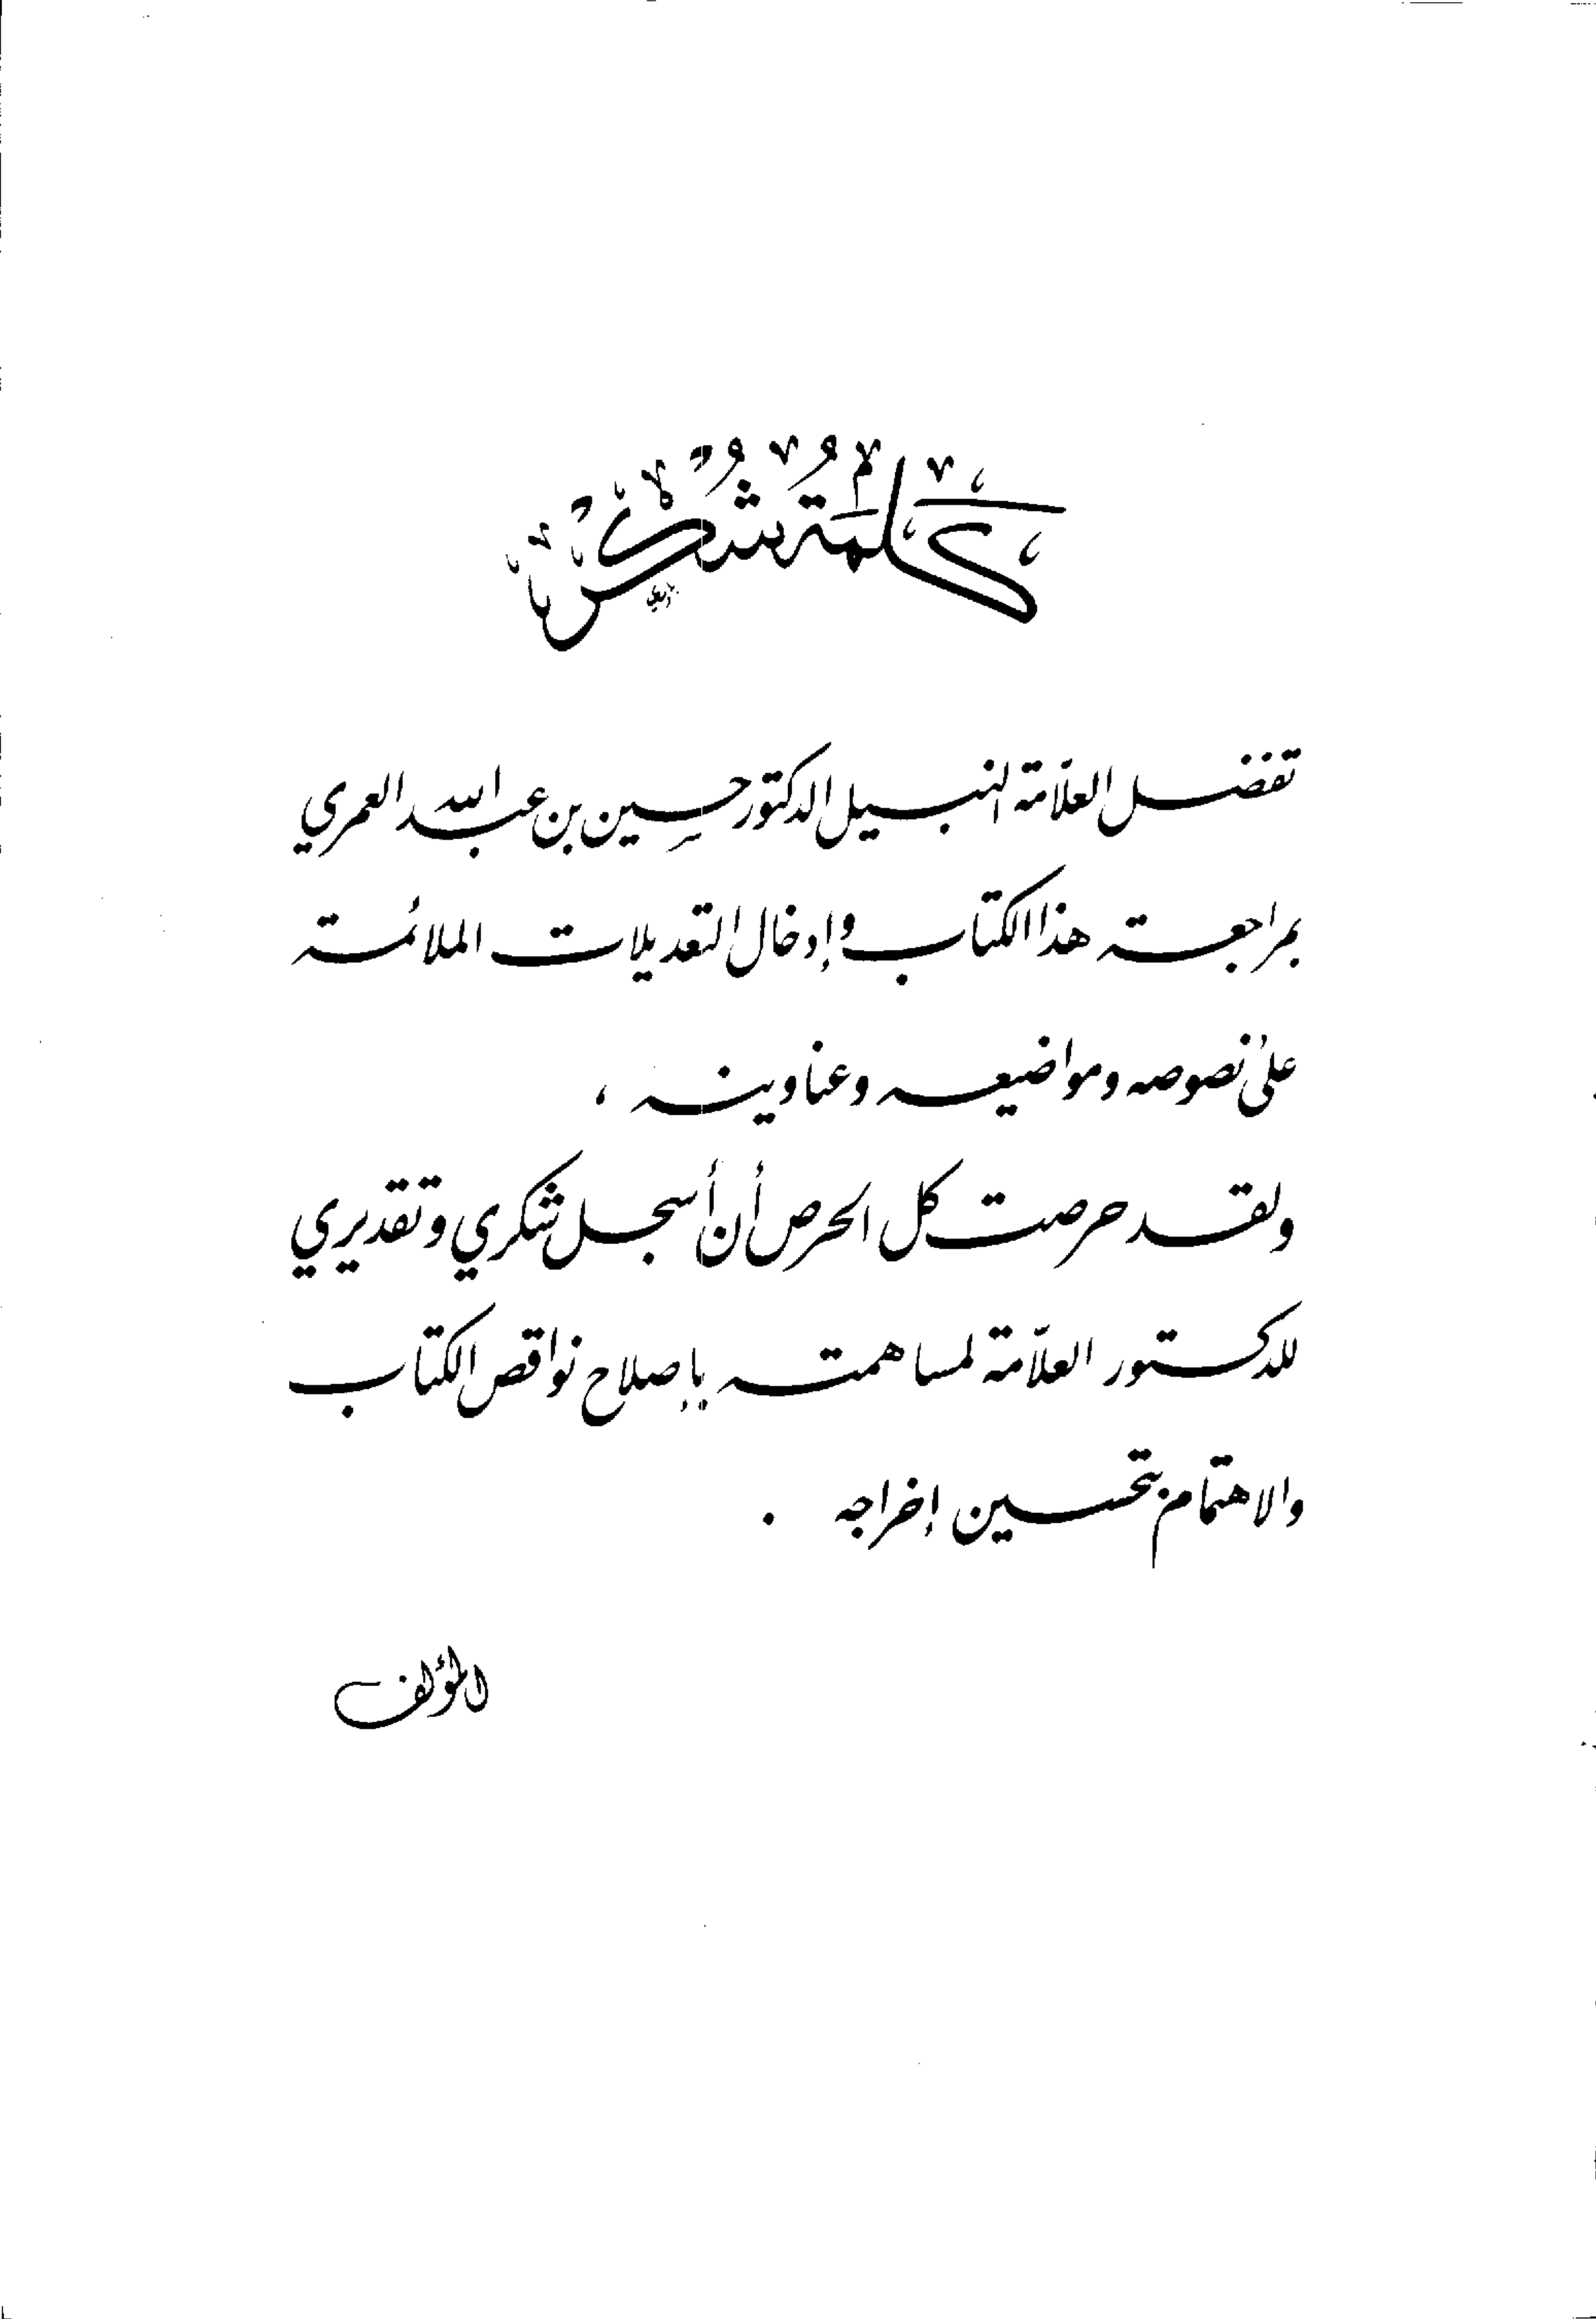 كلمة شكر
تفضل العلاّمة النبيل الدكتور حسين بن عبد الله العمري
بمراجعة هذا الكتاب وإدخال التعديلات الملائمة
على نصوصه ومواضيعه وعناوينه ،
ولقد حرصت كل الحرص أن أسجل شكري وتقديري
للدكتور العلاّمة لمساهمته بإصلاح نواقص الكتاب
والاهتمام بتحسين إخراجه .
المؤلف